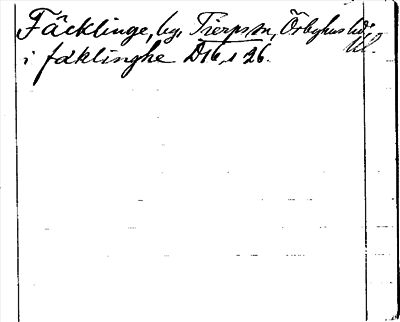 Fäcklinge, by, Tierps sn, Örbyhus hd,
Upl.
i fäklinghe D16, s 26.